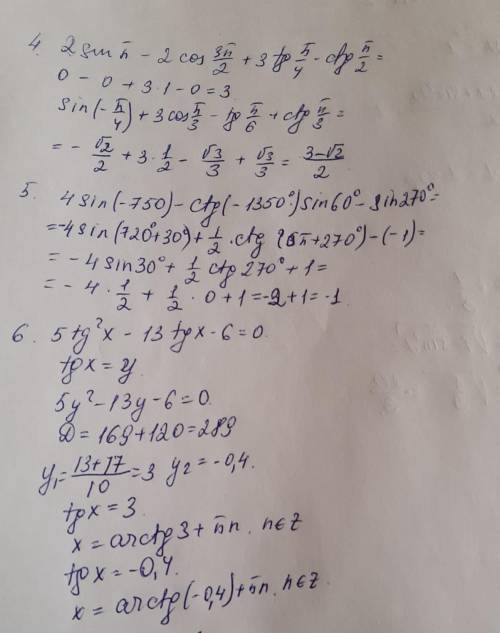 4. 2 sin π - 2 cos 3π/2 + 3 tg π/4 - ctg π/2 =
0 - 0 + 3·1 - 0 = 3
sin(-π/4) + 3 cos π/3 - tg π/6 + ctg π/3 =
= - √2/2 + 3·1/2 - √3/3 + √3/3 = (3-√2)/2
5. 4 sin(-750) - ctg(-1350°) sin 60° - sin 270° =
= -4 sin(720°+30°) + 1/2 · ctg (5π+270°) - (-1) =
= -4 sin 30° + 1/2 ctg 270° + 1 =
= -4 · 1/2 + 1/2 · 0 + 1 = -2 + 1 = -1
6. 5 tg²x - 13 tg x - 6 = 0.
tg x = y
5y² - 13y - 6 = 0.
D = 169 + 120 = 289
y₁ = (13+17)/10 = 3 y₂ = -0,4.
tg x = 3.
x = arctg 3 + πn, n∈Z
tg x = -0,4.
x = arctg(-0,4) + πn, n∈Z.